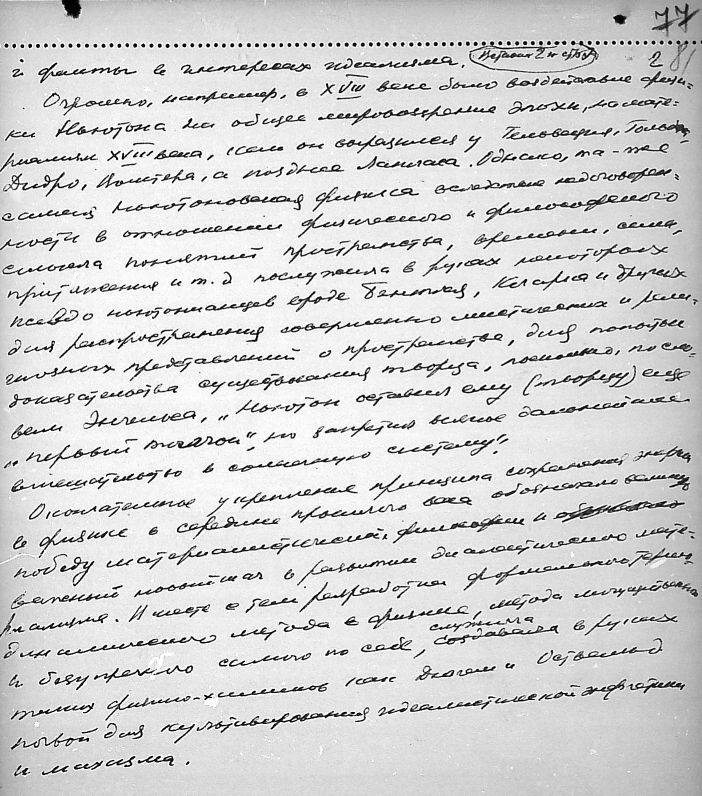 77
2 81
и факты в интересах идеализма. Вставка 2 к стр
Огромно, например, в XVIII веке было воздействие физи-
ки Ньютона на общее мировоззрение эпохи, на мате-
риализм XVIII века, как он выразился у Гельвеция, Гольбаха,
Дидро, Вольтера, а позднее Лапласа. Однако, та-же
самая ньютоновская физика вследствие недоговорен-
ности в отношении физического и философского
смысла понятий пространства, времени, силы,
притяжения и т.д послужила в руках некоторых
псевдо ньютонианцев вроде Бентлея, Кларка и других
для распространения совершенно мистических и рели-
гиозных представлений о пространстве, для попытки
доказательства существования творца, поскольку, по сло-
вам Энгельса, „Ньютон оставил ему (творцу) еще
„первый толчок", но запретил всякое дальнейшее
вмешательство в солнечную систему".
Окончательное укрепление принципа сохранения энергии
в физике в середине прошлого века обозначало великую
победу материалистической философии и
важный новый шаг в развитии диалектического мате-
риализма. Вместе с тем разработка формального термо-
динамического метода в физике, метода могущественного
и безупречного самого по себе, служила создавала в руках
таких физико-химиков как Дюгем и Оствальд
почвой для культивирования идеалистической энергетики
и махизма.